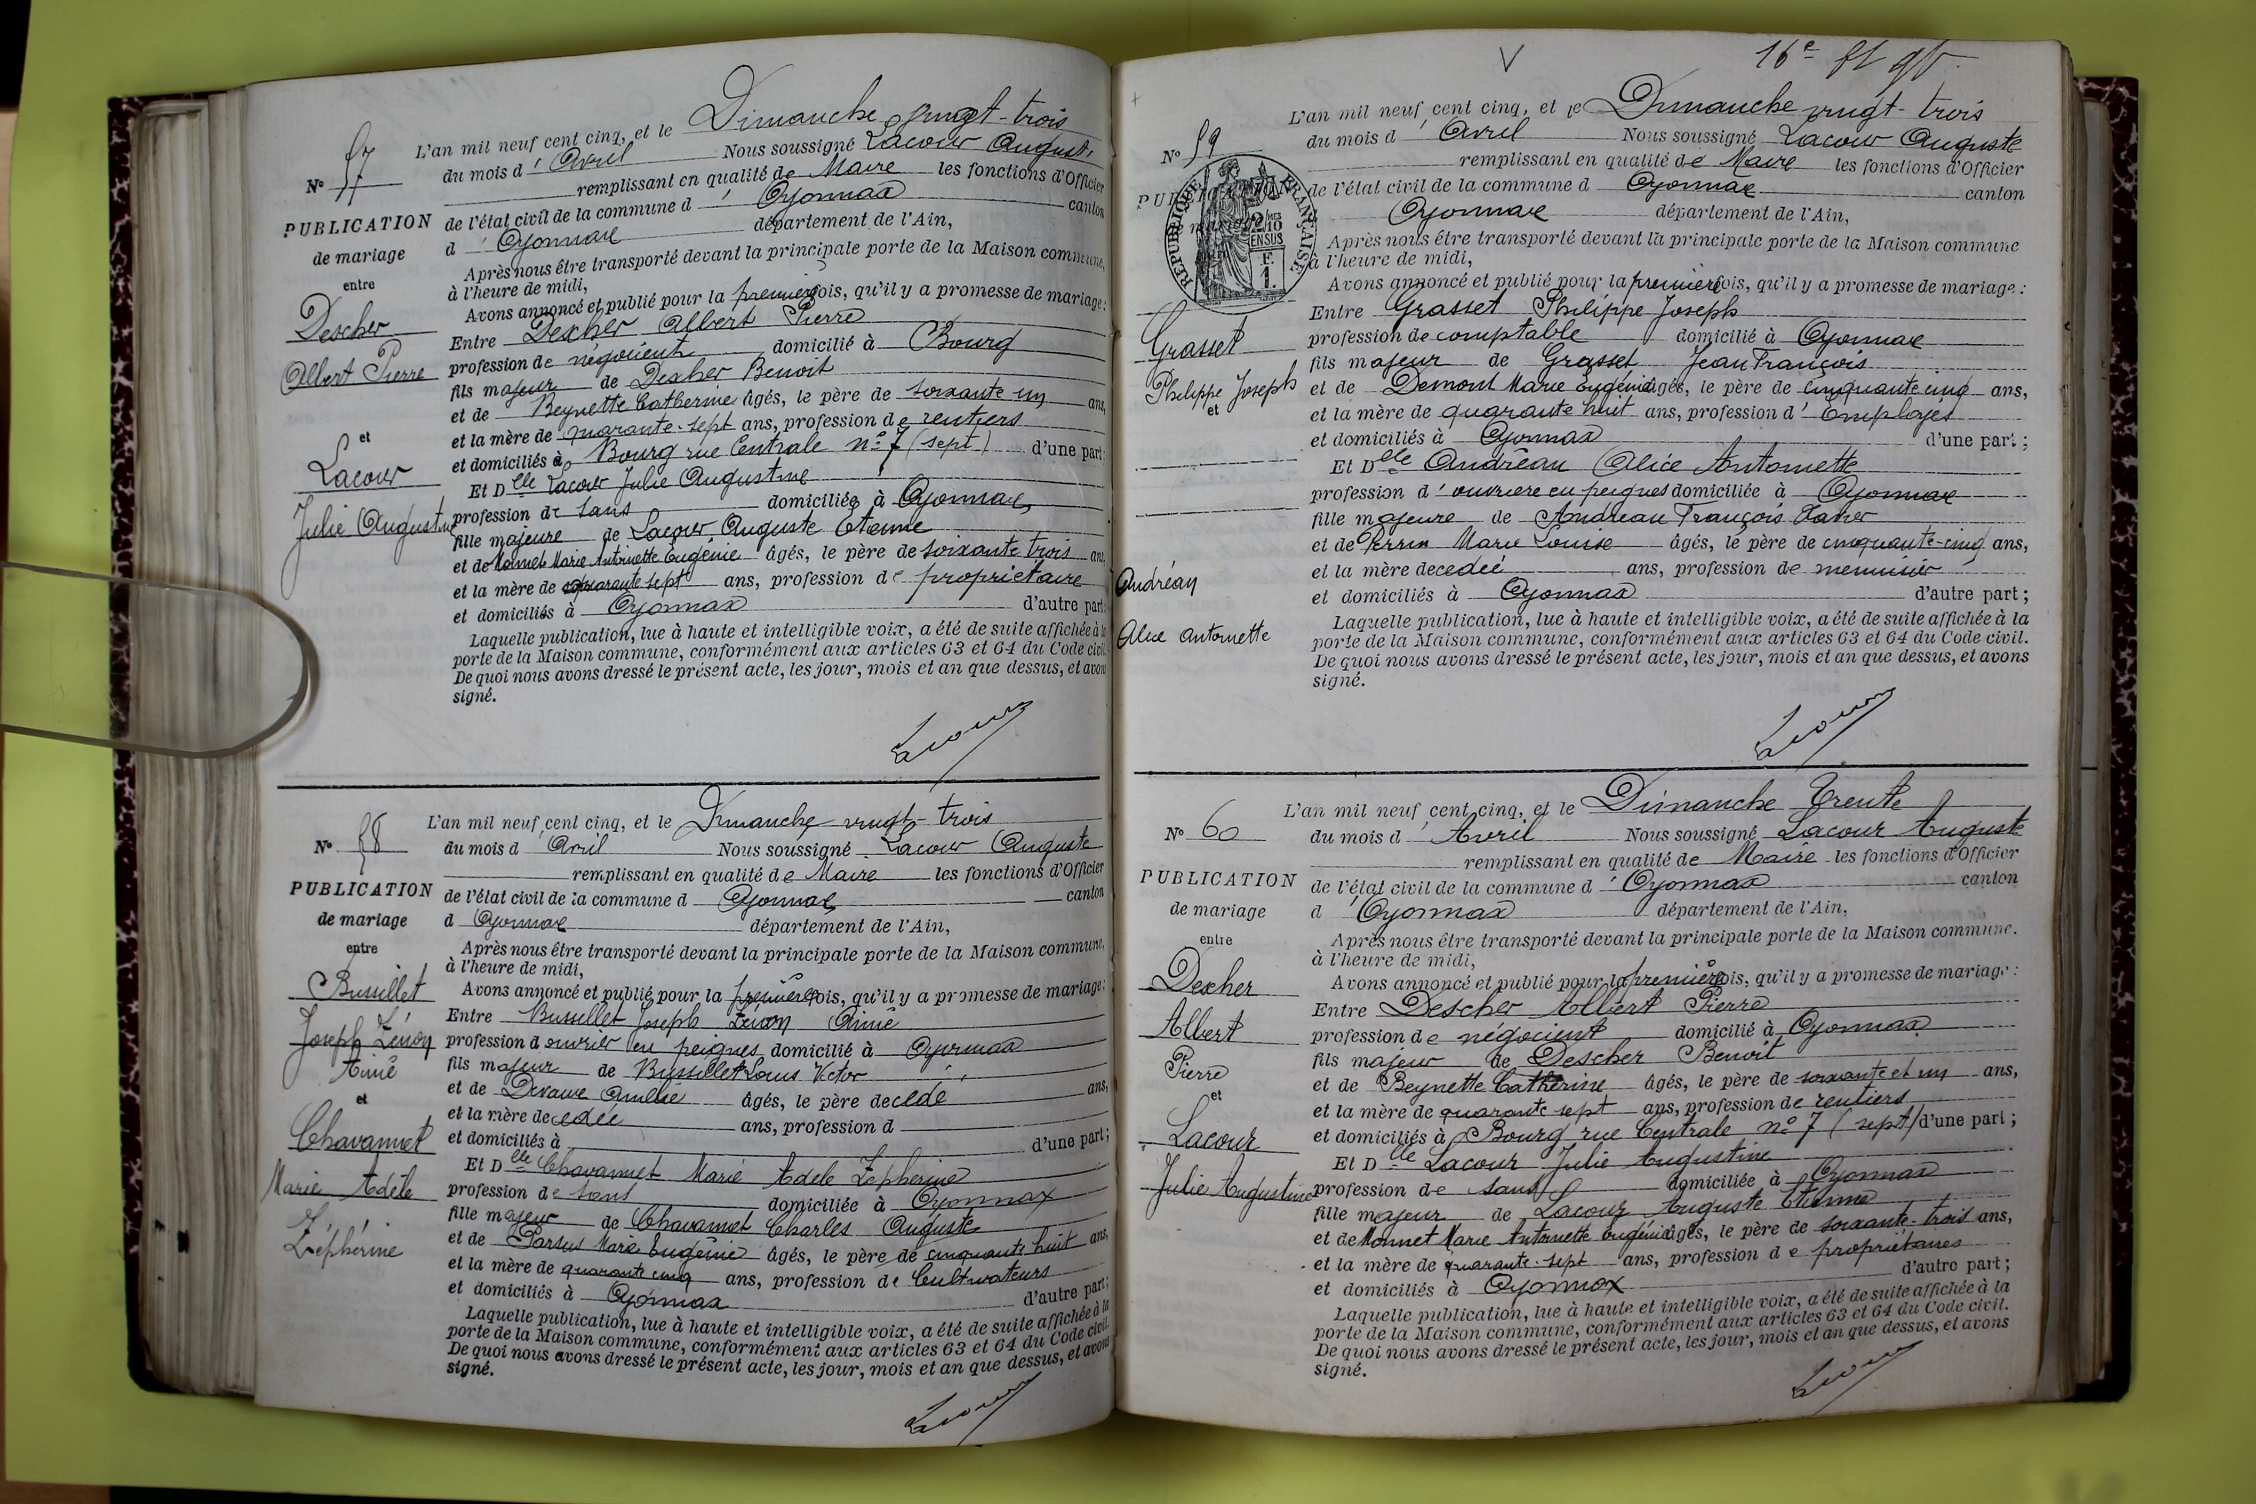 N° 57
PUBLICATION
de mariage
entre
Descher
Albert Pierre
et
Lacour
Julie Augustine
L'an mil neuf cent cinq, et le Dimanche vingt-trois
du mois d' Avril Nous soussigné Lacour Auguste
remplissant en qualité de Maire les fonctions d'Officier
de l'état civil de la commune d' Oyonnax canton
d' Oyonnax département de l'Ain,
Après nous être transporté devant la principale porte de la Maison commune,
à l'heure de midi,
Avons annoncé et publié pour la première fois, qu'il y a promesse de mariage:
Entre Descher Albert Pierre
profession de négocient domicilié à Bourg
fils majeur de Descher Benoit
et de Beynette Catherine âgés, le père de soixante un ans,
et la mère de quarante-sept ans, profession de rentiers
et domiciliés à Bourg rue Centrale n° 7 (sept) d'une part;
Et Dlle Lacour Julie Augustine
profession de sans domiciliée à Oyonnax
fille majeure de Lacour Auguste Etienne
et de Monnet Marie Antoinette Eugénie âgés, le père de soixante trois ans,
et la mère de quarante sept ans, profession de propriétaire
et domiciliés à Oyonnax d'autre part;
Laquelle publication, lue à haute et intelligible voix, a été de suite affichée à la
porte de la Maison commune, conformément aux articles 63 et 64 du Code civil.
De quoi nous avons dressé le présent acte, les jour, mois et an que dessus, et avons
signé.
Lacour
N° 58
PUBLICATION
de mariage
entre
Bussillet
Joseph Zénon
Aimé
et
Chavannet
Marie Adèle
Zéphérine
L'an mil neuf cent cinq, et le Dimanche vingt-trois
du mois d' Avril Nous soussigné Lacour Auguste
remplissant en qualité de Maire les fonctions d'Officier
de l'état civil de la commune d Oyonnax canton
d Oyonnax département de l'Ain,
Après nous être transporté devant la principale porte de la Maison commune,
à l'heure de midi,
Avons annoncé et publié pour la première fois, qu'il y a promesse de mariage:
Entre Bussillet Joseph Zénon Aimé
profession d ouvrier en peignes domicilié à Oyonnax
fils majeur de Bussillet Louis Victor
et de Amélie âgés, le père decedé ans,
et la mère decedée ans, profession d
et domiciliés à d'une part;
Et Dlle Chavannet Marie Adele Zépherine
profession de sans domiciliée à Oyonnax
fille majeur de Chavannet Charles Auguste
et de Marie Eugénie âgés, le père de cinquante huit ans,
et la mère de quarante cinq ans, profession de Cultivateurs
et domiciliés à Oyonnax d'autre part;
Laquelle publication, lue à haute et intelligible voix, a été de suite affichée à la
porte de la Maison commune, conformément aux articles 63 et 64 du Code civil.
De quoi nous avons dressé le présent acte, les jour, mois et an que dessus, et avons
signé.
Lacour
16e
N° 59
RÉPUBLIQUE FRANÇAISE
2/10 EN SUS
F. 1.
Grasset
Philippe Joseph
et
Andréan
Alice Antoinette
L'an mil neuf cent cinq, et le Dimanche vingt-trois
du mois d' Avril Nous soussigné Lacour Auguste
remplissant en qualité de Maire les fonctions d'Officier
de l'état civil de la commune d Oyonnax canton
Oyonnax département de l'Ain,
Après nous être transporté devant la principale porte de la Maison commune
à l'heure de midi,
Avons annoncé et publié pour la première fois, qu'il y a promesse de mariage:
Entre Grasset Philippe Joseph
profession de comptable domicilié à Oyonnax
fils majeur de Grasset Jean François
et de Demont Marie Eugénie âgés, le père de cinquante cinq ans,
et la mère de quarante huit ans, profession d' Employés
et domiciliés à Oyonnax d'une part;
Et Dlle Andréan Alice Antoinette
profession d' ouvriere en peignes domiciliée à Oyonnax
fille majeure de Andréan François Xavier
et de Perrin Marie Louise âgés, le père de cinquante-cinq ans,
et la mère decedeé ans, profession de menuisier
et domiciliés à Oyonnax d'autre part;
Laquelle publication, lue à haute et intelligible voix, a été de suite affichée à la
porte de la Maison commune, conformément aux articles 63 et 64 du Code civil.
De quoi nous avons dressé le présent acte, les jour, mois et an que dessus, et avons
signé.
Lacour
N° 60
PUBLICATION
de mariage
entre
Descher
Albert
Pierre
et
Lacour
Julie Augustine
L'an mil neuf cent cinq, et le Dimanche Trente
du mois d' Avril Nous soussigné Lacour Auguste
remplissant en qualité de Maire les fonctions d'Officier
de l'état civil de la commune d' Oyonnax canton
d' Oyonnax département de l'Ain,
Après nous être transporté devant la principale porte de la Maison commune.
à l'heure de midi,
Avons annoncé et publié pour la première fois, qu'il y a promesse de mariage:
Entre Descher Albert Pierre
profession de négocient domicilié à Oyonnax
fils majeur de Descher Benoit
et de Beynette Catherine âgés, le père de soixante et un ans,
et la mère de quarante sept ans, profession de rentiers
et domiciliés à Bourg rue Centrale n° 7 (sept) d'une part;
Et Dlle Lacour Julie Augustine
profession de sans domiciliée à Oyonnax
fille majeur de Lacour Auguste Etienne
et de Monnet Marie Antoinette Eugénie âgés, le père de soixante-trois ans,
et la mère de quarante-sept ans, profession de propriétaires
et domiciliés à Oyonnax d'autre part;
Laquelle publication, lue à haute et intelligible voix, a été de suite affichée à la
porte de la Maison commune, conformément aux articles 63 et 64 du Code civil.
De quoi nous avons dressé le présent acte, les jour, mois et an que dessus, et avons
signé.
Lacour